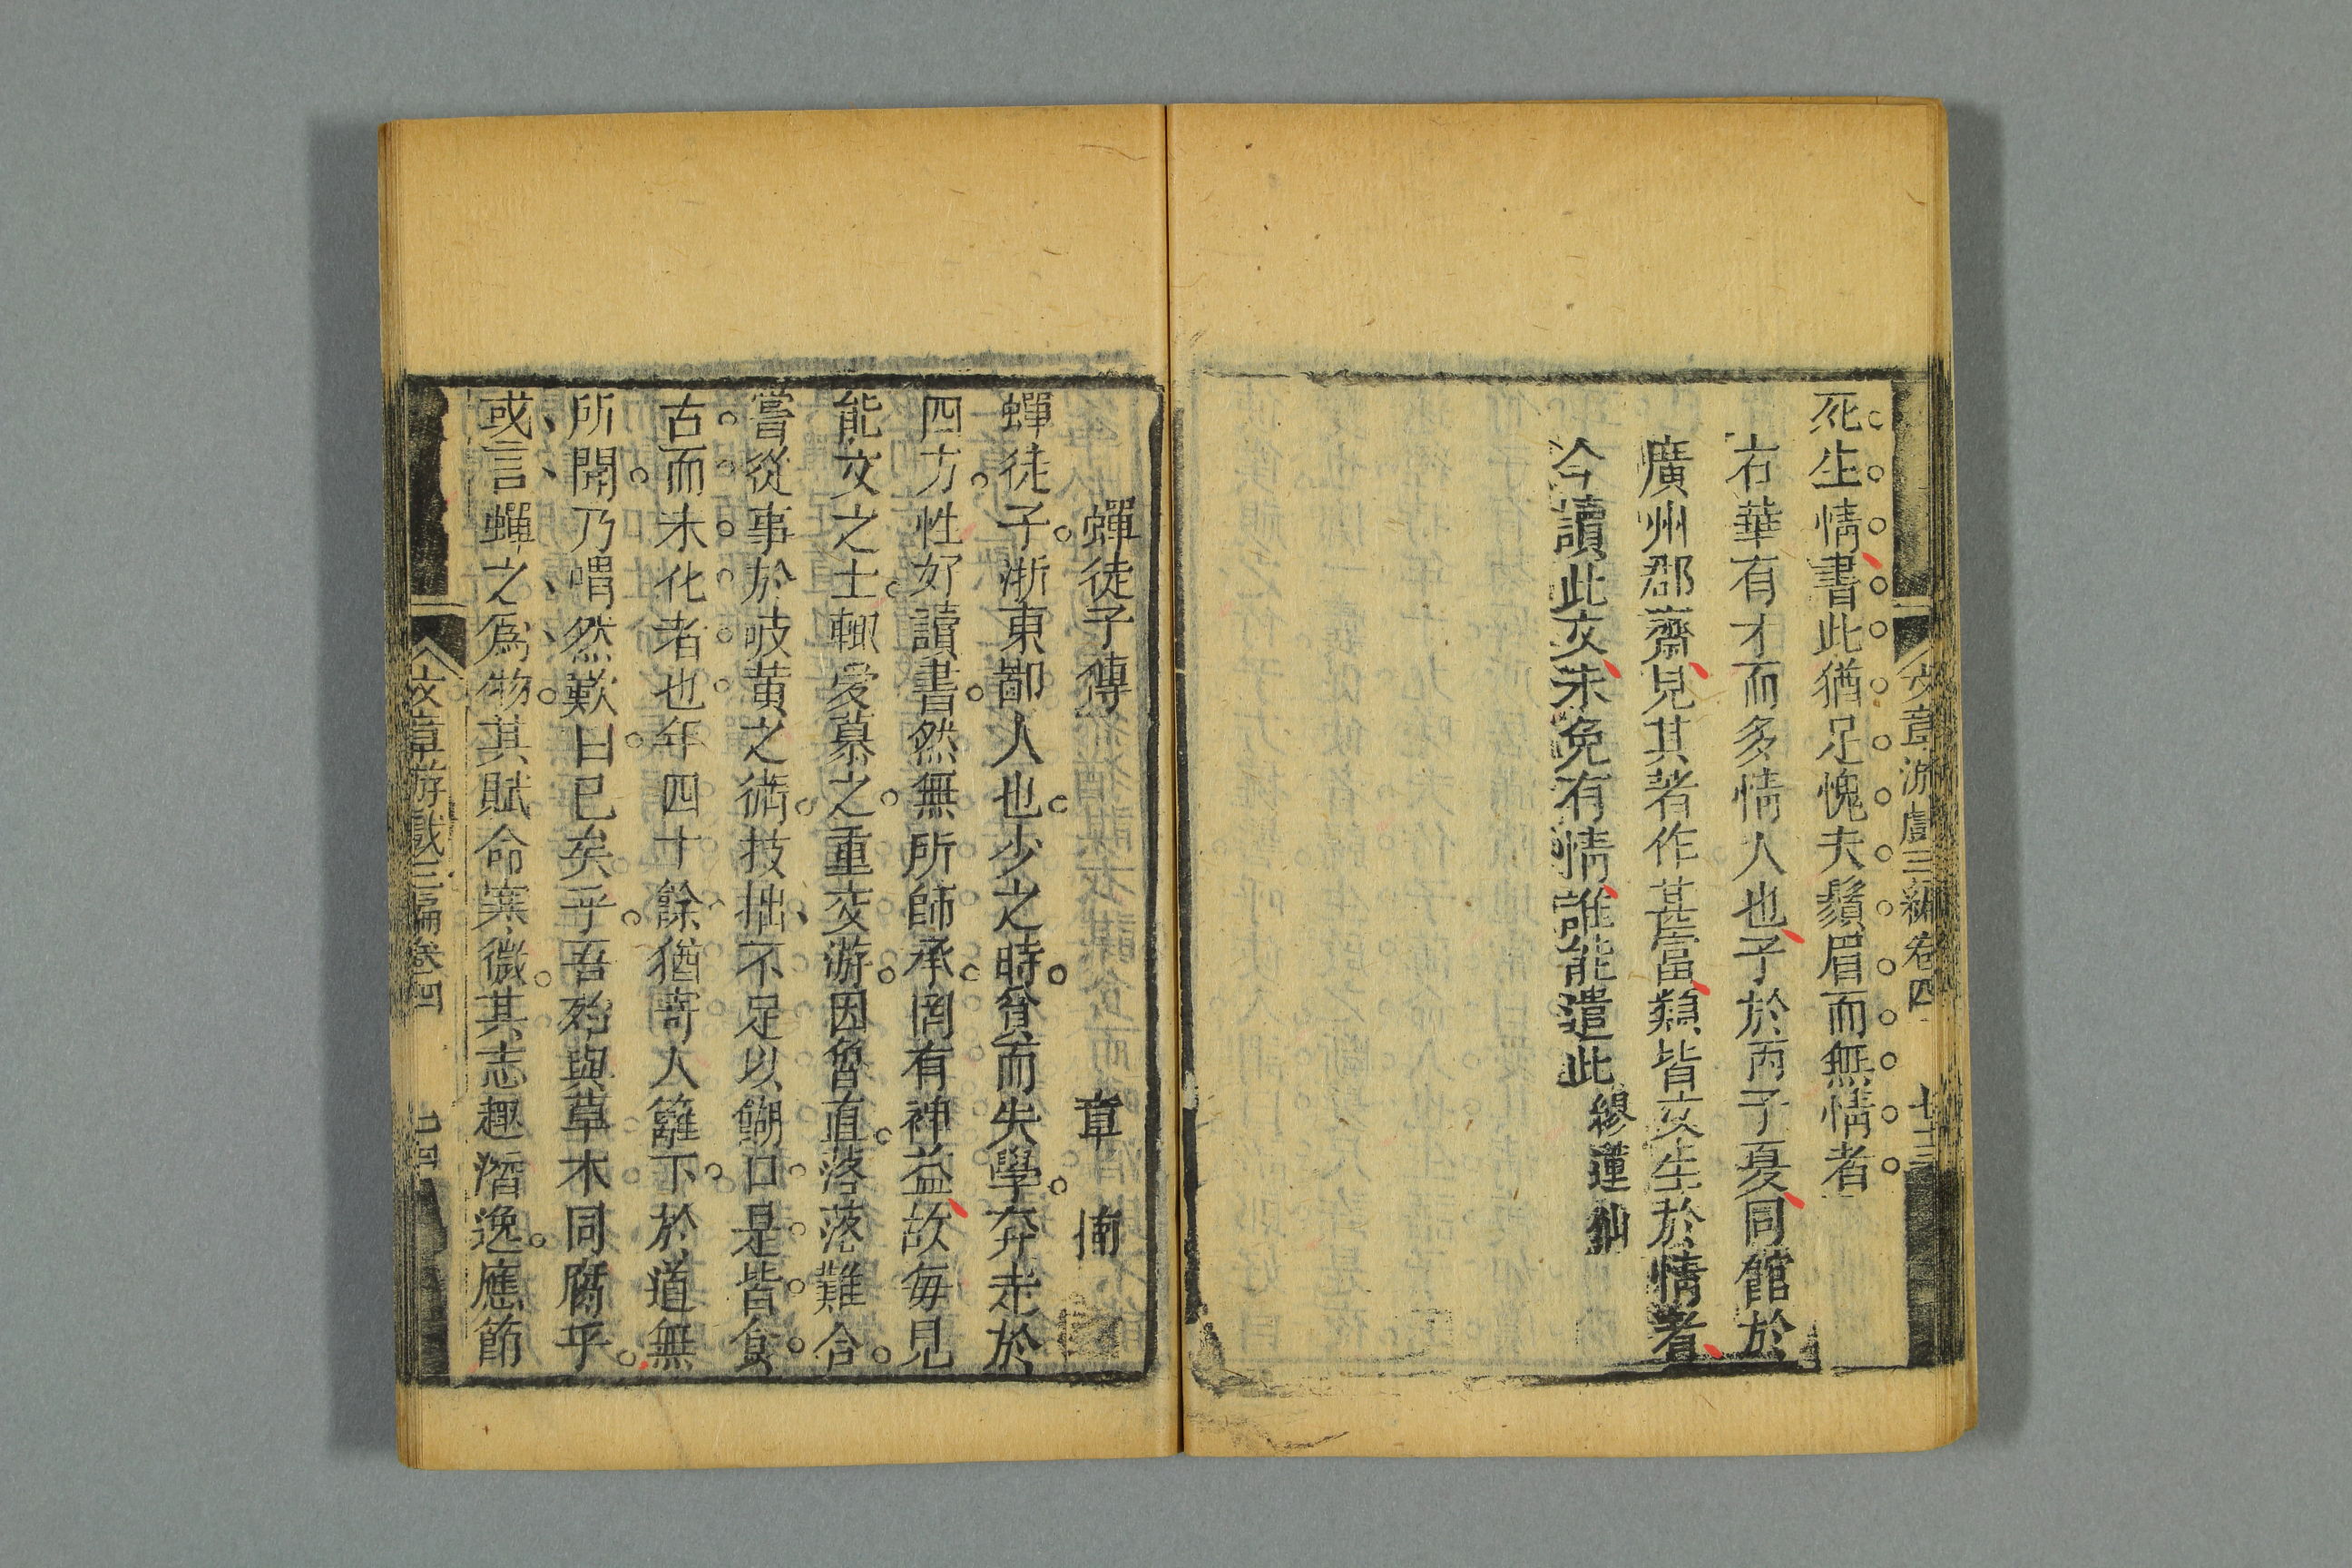 文章游戲三編卷四 七十三
死生情書此猶足愧夫鬚眉而無情者
右華有才而多情人也予於丙子夏同館於
廣州郡齋見其著作甚富類皆文生於情者
今讀此文未免有情誰能遣此繆蓮仙
蟬徒子傳 章 楠
蟬徒子浙東鄙人也少之時貧而失學奔走於
四方性好讀書然無所師承罔有神益故每見
能文之士輒愛慕之重交游因魯直落落難合
嘗從事於岐黄之術技拙不足以餬口是皆食
古而未化者也年四十餘猶寄人籬下於道無
所聞乃喟然歎曰已矣乎吾殆與草木同腐乎
或言蟬之爲物其賦命寒微其志趣潛逸應節
文章游戲三編卷四 七十四